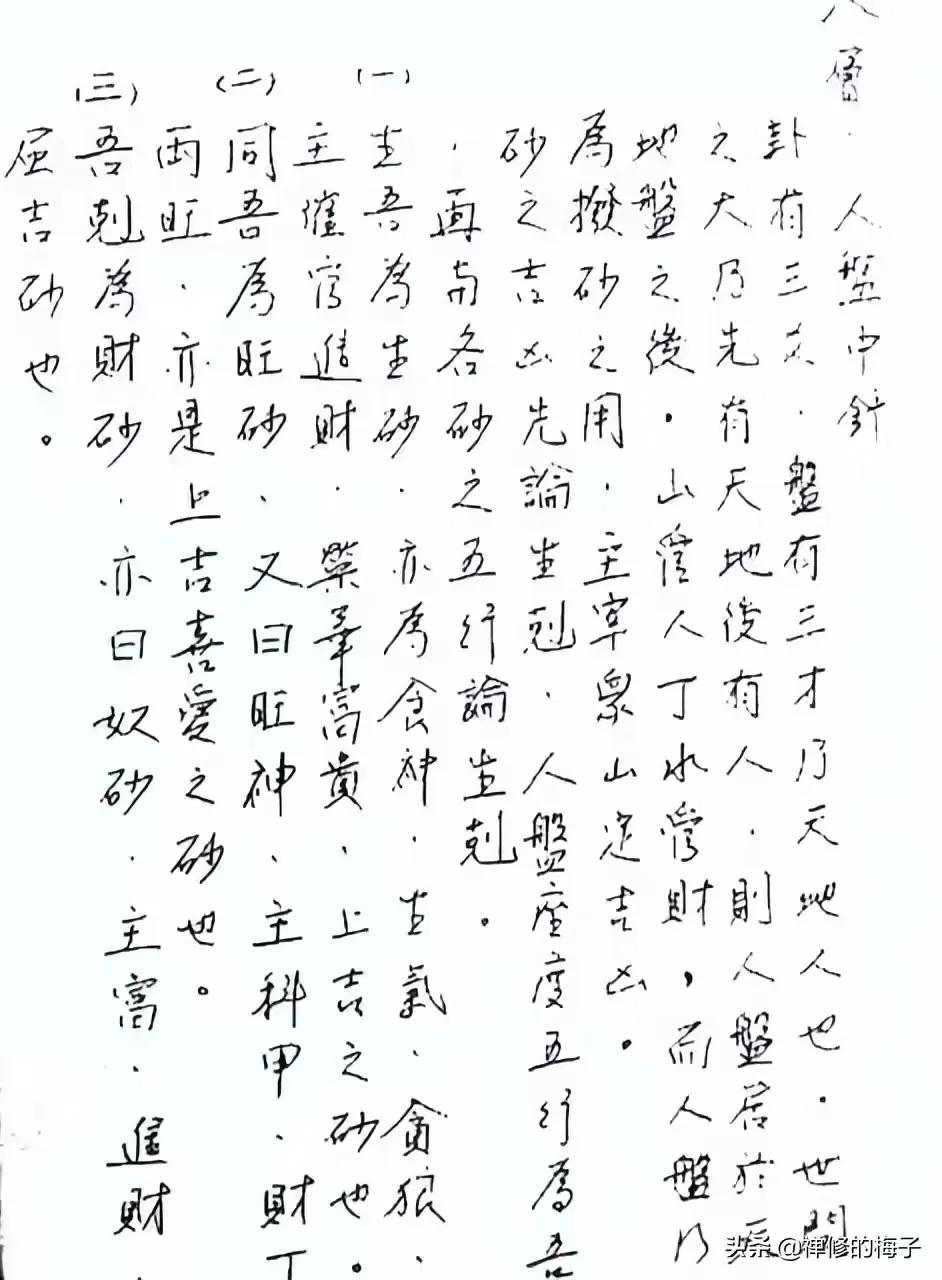 八層．人盤中針
卦有三爻．盤有三才乃天地人也．世間
之大乃先有天地後有人．則人盤居於
地盤之後。山管人丁水管財，而人盤乃
為撥砂之用．主宰眾山定吉凶。
砂之吉凶先論生剋．人盤座度五行為吾
．再與各砂之五行論生剋。
(一)生吾為生砂．亦為食神．生氣．貪狼．
主催官進財．榮華富貴．上吉之砂也。
(二)同吾為旺砂．又曰旺神．主科甲．財丁
兩旺．亦是上吉喜愛之砂也。
(三)吾剋為財砂．亦曰奴砂．主富．進財．
吉砂也。
头条 @禅修的梅子